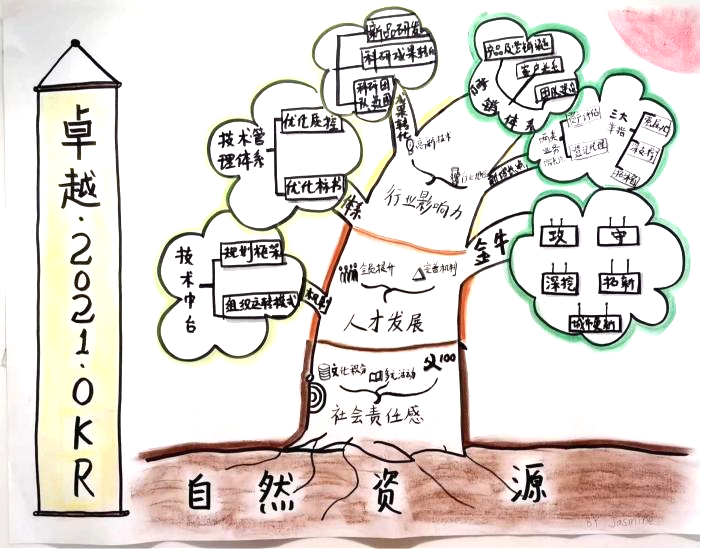 卓越·2021·OKR
新品研发
科研成果转化
科研团队
成果转化
优化质控
优化标书
技术管
理体系
体系
规划框架
组织运转模式
技术中台
机制
营销体系
客户关系
团队建设
三大
举措
两类
业务
行业影响力
金牛
攻
守
深挖
拓新
城市更新
全员提升
完善机制
人才发展
文化
多元活动
100
社会责任感
自然资源
BY Jasmine